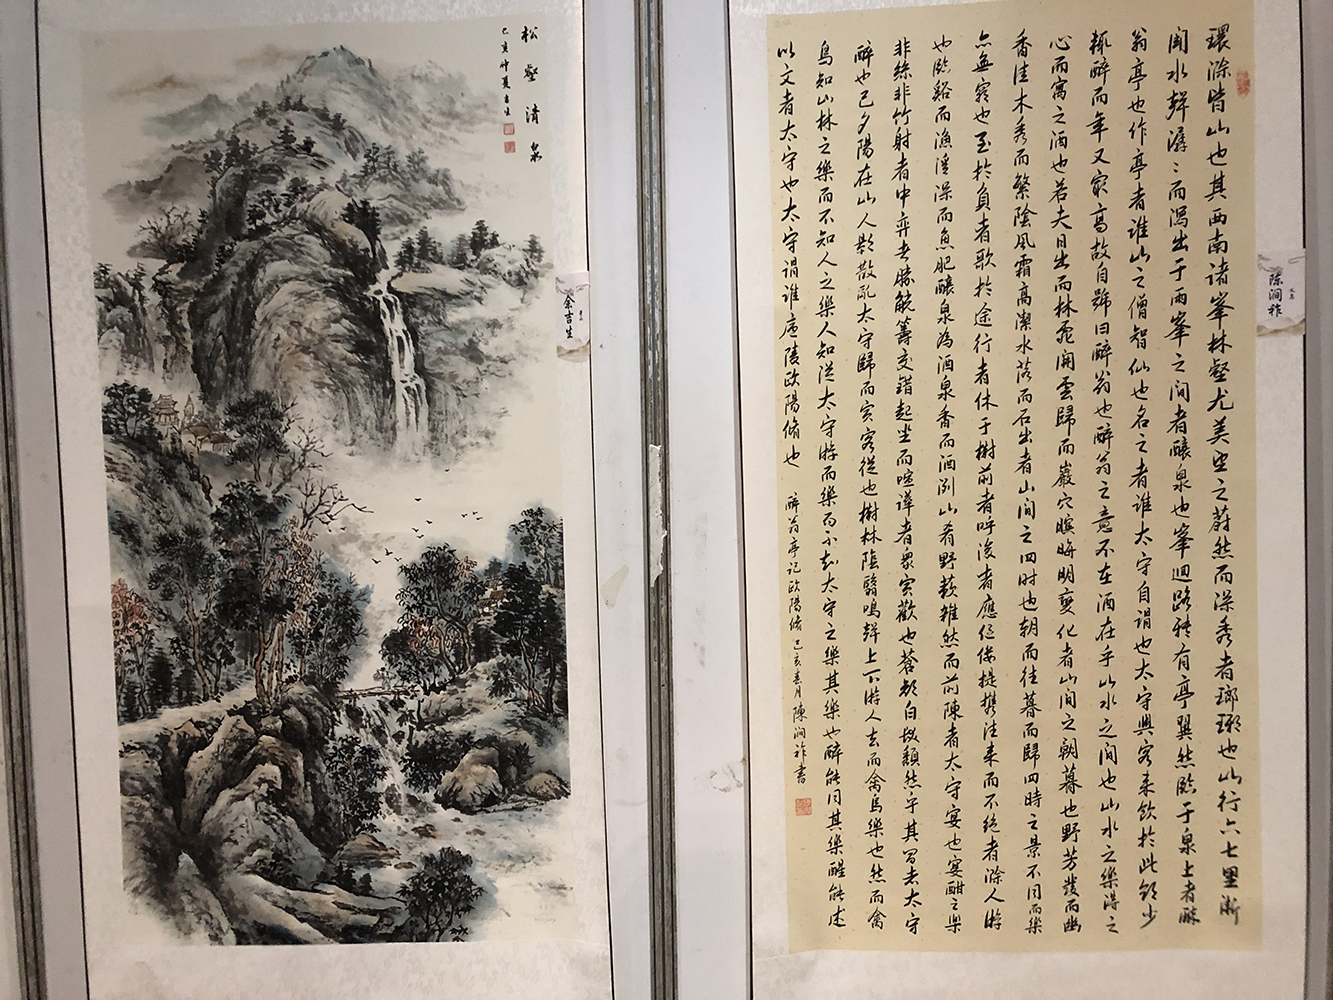 松壑清泉
己亥仲夏吉生
余吉生
環滁皆山也其西南諸峯林壑尤美望之蔚然而深秀者瑯琊也山行六七里漸
聞水聲潺〻而瀉出于兩峯之間者釀泉也峯迴路轉有亭翼然臨于泉上者醉
翁亭也作亭者誰山之僧智仙也名之者誰太守自謂也太守與客來飲於此飲少
輒醉而年又最高故自號曰醉翁也醉翁之意不在酒在乎山水之間也山水之樂得之
心而寓之酒也若夫日出而林霏開雲歸而巖穴暝晦明變化者山間之朝暮也野芳發而幽
香佳木秀而繁陰風霜高潔水落而石出者山間之四時也朝而往暮而歸四時之景不同而樂
亦無窮也至於負者歌於途行者休于樹前者呼後者應傴僂提攜往來而不絕者滁人游
也臨谿而漁溪深而魚肥釀泉為酒泉香而酒洌山肴野蔌雜然而前陳者太守宴也宴酣之樂
非絲非竹射者中弈者勝觥籌交錯起坐而喧譁者眾賓歡也蒼顏白髮頹然乎其間者太守
醉也已夕陽在山人影散亂太守歸而賓客從也樹林陰翳鳴聲上下游人去而禽鳥樂也然而禽
鳥知山林之樂而不知人之樂人知從太守游而樂而不知太守之樂其樂也醉能同其樂醒能述
以文者太守也太守謂誰廬陵歐陽脩也
醉翁亭記歐陽脩己亥春月陳澗祚書
陳澗祚